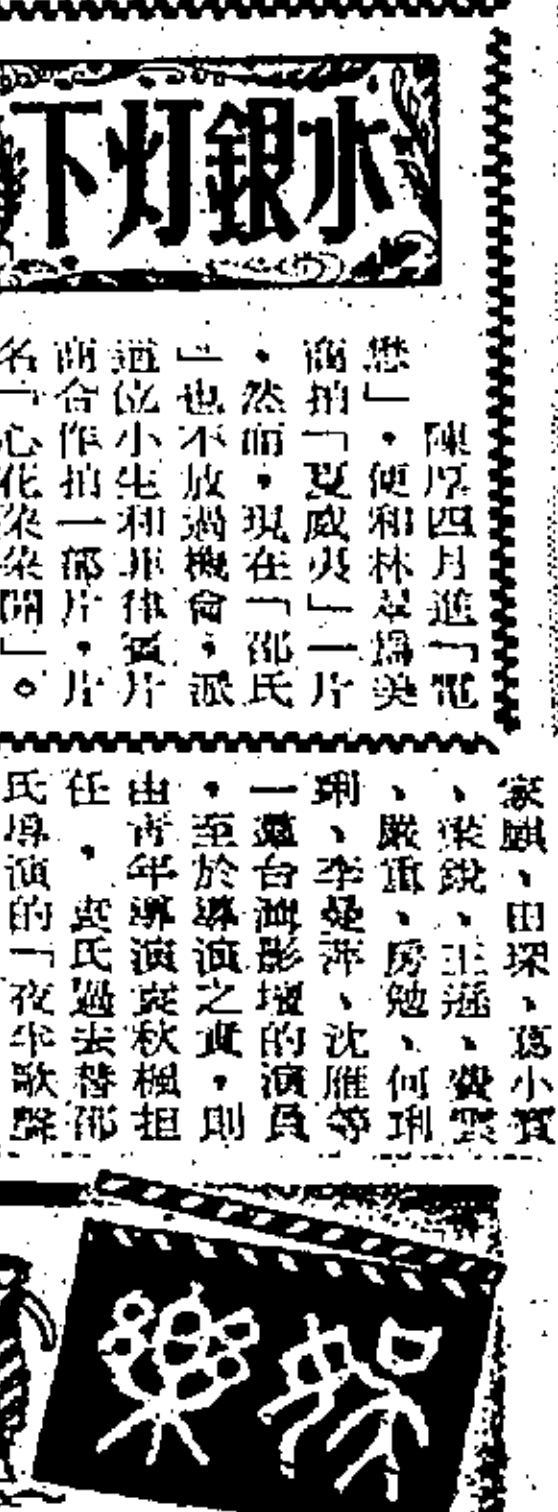 水銀灯下
陳厚四月進「電
懋」,便和林翠為美
商拍「夏威夷」一片
,然而,現在「邵氏
」也不放過機會,派
這位小生和菲律賓片
商合作拍一部片,片
名「心花朵朵開」。
家麒、田琛、葛小寶
、梁銳、王遜、費雲
、嚴重、房勉、何琍
琍、李曼萍、沈雁等
一羣台灣影壇的演員
,至於導演之責,則
由青年導演袁秋楓担
任,袁氏過去替邵
氏導演的「夜半歌聲
娛樂